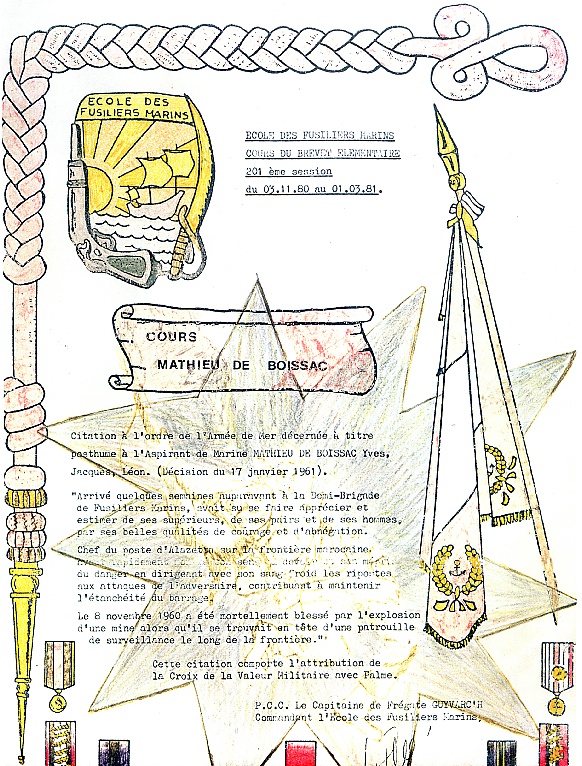 ECOLE DES
FUSILIERS MARINS
ECOLE DES FUSILIERS MARINS
COURS DU BREVET ELEMENTAIRE
201 ème session
du 03.11.80 au 01.03.81.
COURS
MATHIEU DE BOISSAC
Citation à l'ordre de l'Armée de Mer décernée à titre
posthume à l'Aspirant de Marine MATHIEU DE BOISSAC Yves,
Jacques, Léon. (Décision du 17 janvier 1961).
"Arrivé quelques semaines auparavant à la Demi-Brigade
de Fusiliers Marins, avait su se faire apprécier et
estimer de ses supérieurs, de ses pairs et de ses hommes,
par ses belles qualités de courage et d'abnégation.
Chef du poste d'Alazetto sur la frontière marocaine
rapidement son sens du devoir et son
du danger en dirigeant avec son sang froid les ripostes
aux attaques de l'adversaire, contribuant à maintenir
l'étanchéité du barrage.
Le 8 novembre 1960 a été mortellement blessé par l'explosion
d'une mine alors qu'il se trouvait en tête d'une patrouille
de surveillance le long de la frontière."
Cette citation comporte l'attribution de
la Croix de la Valeur Militaire avec Palme.
P.C.C. Le Capitaine de Frégate GUYVARC'H
Commandant l'Ecole des Fusiliers Marins,